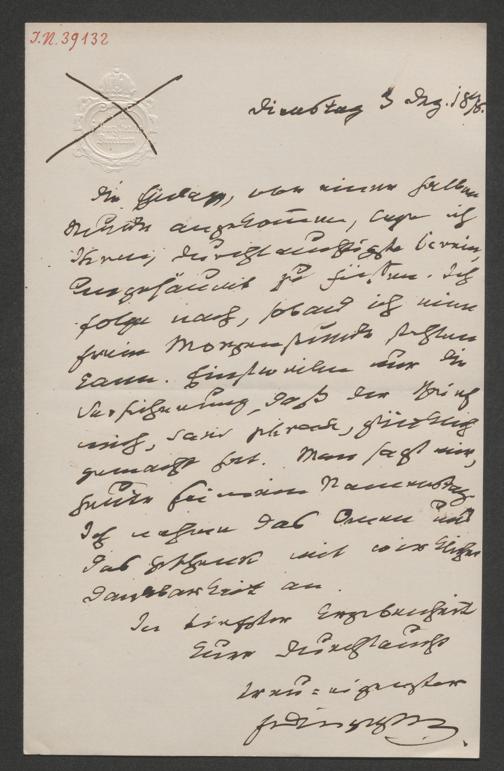 I.N. 39132
Dienstag 3 Dez. 1878.
Die , vor einer halben
Stunde angekommen, lege ich
Ihnen, durchlauchtigste Fürstin,
ungesäumt zu Füßen. Ich
folge nach, sobald ich eine
freie Morgenstunde stehlen
kann. Einstweilen nur die
Versicherung, daß der Brief
mich, , glücklich
gemacht hat. Man sagt mir,
heute sei mein Namenstag.
Ich nehme das Omen und
das Geschenk mit wirklicher
Dankbarkeit an.
In tiefster Ergebenheit
Eurer Durchlaucht
treu=eigenster